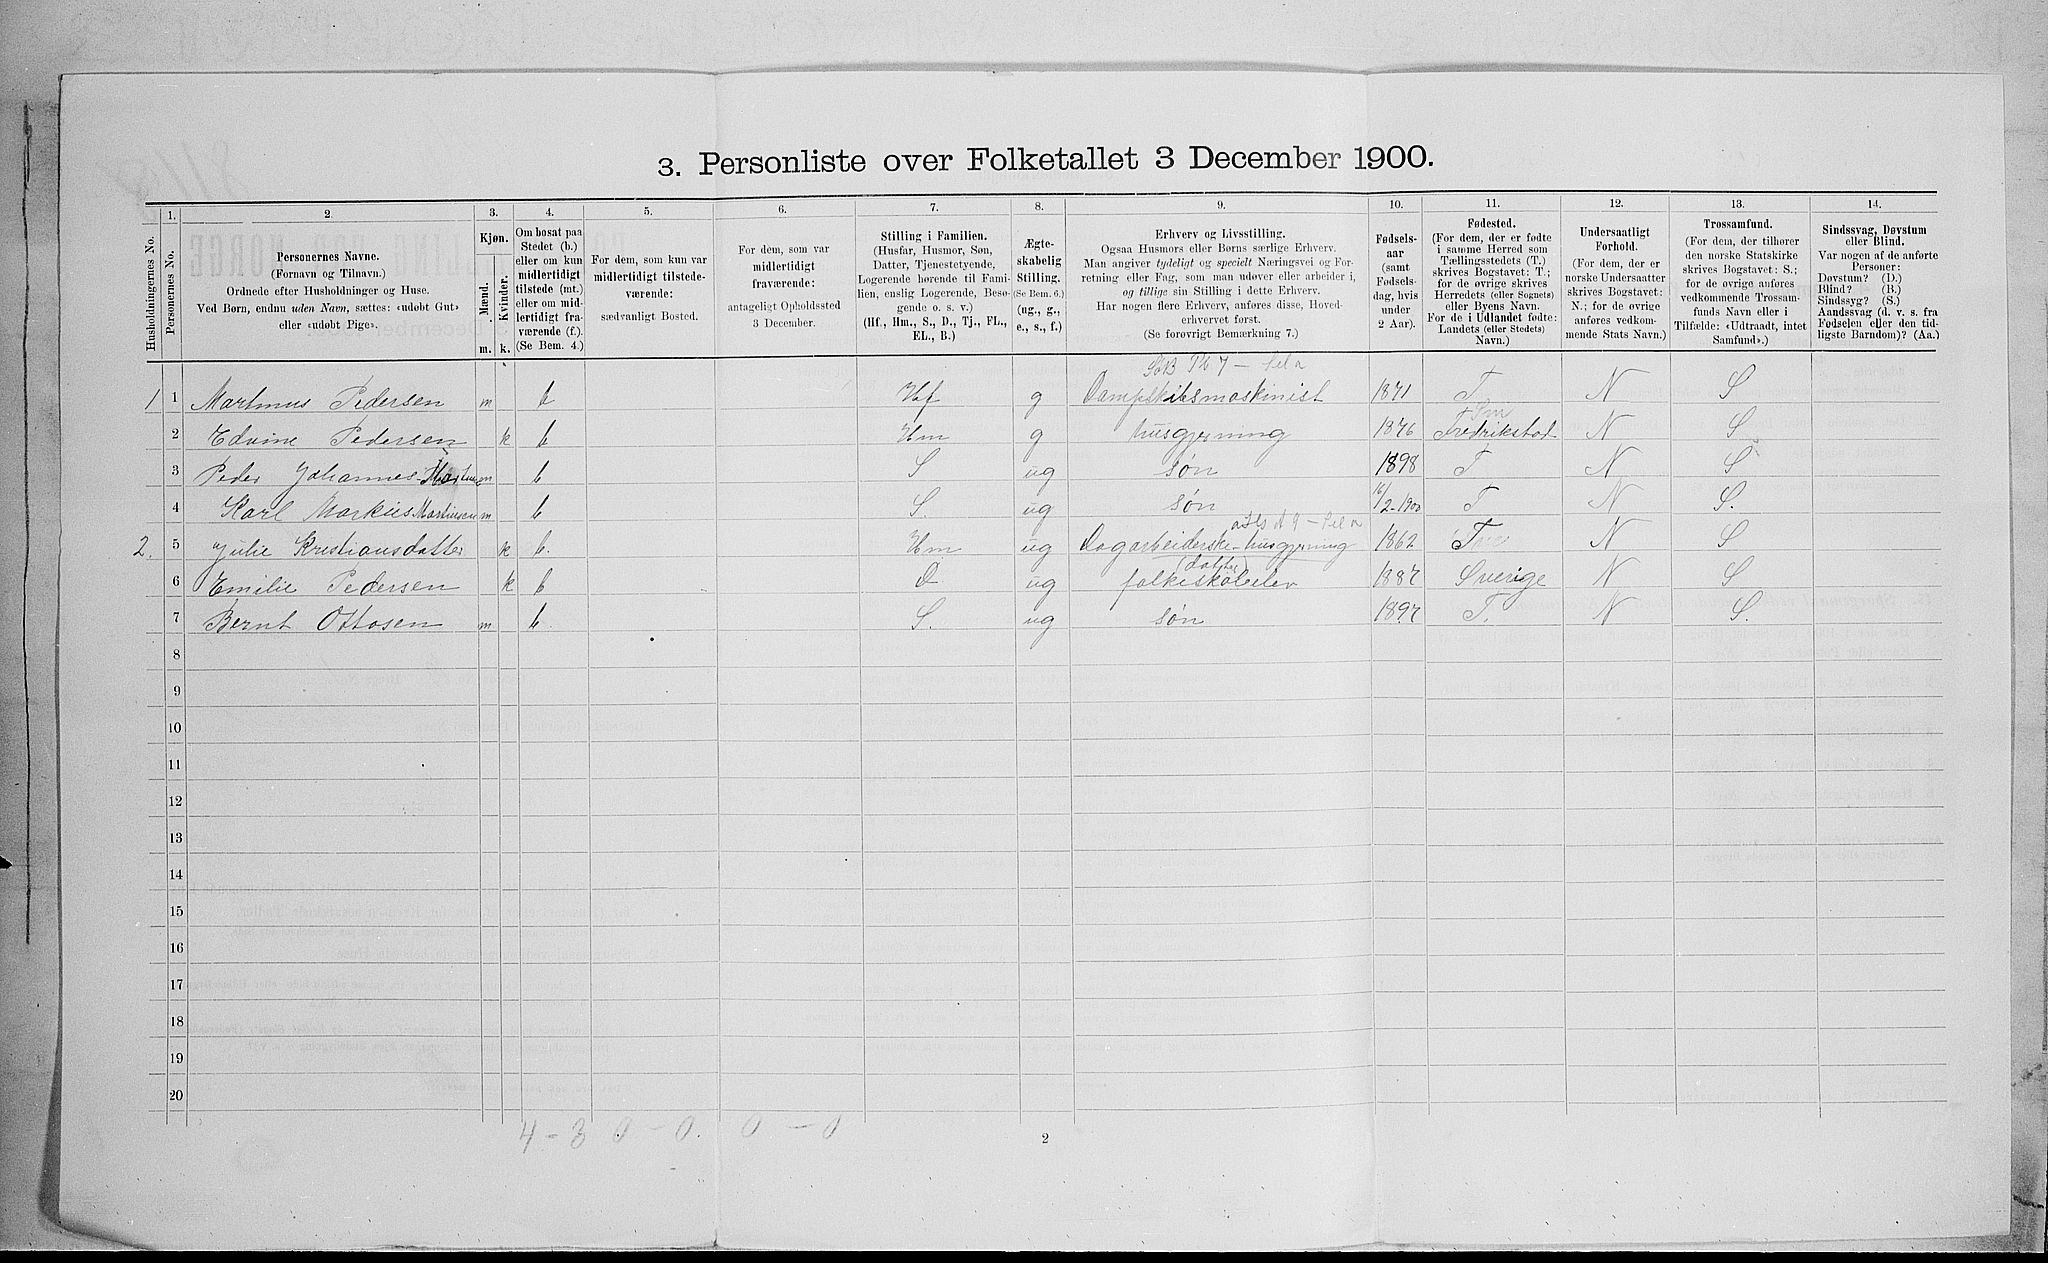 3. Personliste over Folketallet 3 December 1900.
1. 2. 3. 4. 5. 6. 7. 8. 9. 10. 11. 12. 13. 14.
Husholdningernes No.
Personernes No.
Personernes Navne.
(Fornavn og Tilnavn.)
Ordnede efter Husholdninger og Huse.
Ved Børn, endnu uden Navn, sættes: «udøbt Gut»
eller «udøbt Pige».
Kjøn.
Mænd.
Kvinder.
m. k.
Om bosat paa
Stedet (b.)
eller om kun
midlertidigt
tilstede (mt.)
eller om mid-
lertidigt fra-
værende (f.).
(Se Bem. 4.)
For dem, som kun var
midlertidigt tilstede-
værende:
sædvanligt Bosted.
For dem, som var
midlertidigt
fraværende:
antageligt Opholdssted
3 December.
Stilling i Familien.
(Husfar, Husmor, Søn,
Datter, Tjenestetyende,
Logerende hørende til Fami-
lien, enslig Logerende, Besø-
gende o. s. v.)
(Hf., Hm., S., D., Tj., FL.,
EL., B.)
Ægte-
skabelig
Stilling.
(Se Bem. 6.)
(ug., g.,
e., s., f.)
Erhverv og Livsstilling.
Ogsaa Husmors eller Børns særlige Erhverv.
Man angiver tydeligt og specielt Næringsvei og For-
retning eller Fag, som man udøver eller arbeider i,
og tillige sin Stilling i dette Erhverv.
Har nogen flere Erhverv, anføres disse, Hoved-
erhvervet først.
(Se forøvrigt Bemærkning 7.)
Fødsels-
aar
(samt
Fødsels-
dag, hvis
under
2 Aar).
Fødested.
(For dem, der er fødte
i samme Herred som
Tællingsstedets (T.)
skrives Bogstavet: T.;
for de øvrige skrives
Herredets (eller Sognets)
eller Byens Navn.
For de i Udlandet fødte:
Landets (eller Stedets)
Navn.)
Undersaatligt
Forhold.
(For dem, der er
norske Undersaatter
skrives Bogstavet:
N.; for de øvrige
anføres vedkom-
mende Stats Navn.)
Trossamfund.
(For dem, der tilhører
den norske Statskirke
skrives Bogstavet: S.;
for de øvrige anføres
vedkommende Trossam-
funds Navn eller i
Tilfælde: «Udtraadt, intet
Samfund».)
Sindssvag, Døvstum
eller Blind.
Var nogen af de anførte
Personer:
Døvstum? (D.)
Blind? (B.)
Sindssyg? (S.)
Aandssvag (d. v. s. fra
Fødselen eller den tid-
ligste Barndom)? (Aa.)
1 1 Martinus Pedersen m b Hf g Dampskibsmaskinist 1871 T N S
2 Edvine Pedersen k b Hm g husgjerning 1876 Fredrikstad N S
3 Peder Johannes m b S ug søn 1898 T N S
4 Karl Markus Martinsen m b S. ug søn 16/2-1900 T N S.
2. 5 Julie Kristiansdatter k b. Hm ug Dagarbeiderske-husgjerning 1862 N S
(datter)
6 Emilie Pedersen k b D ug folkeskolelev 1887 Sverige N S
7 Bernt Ottosen m b. S. ug søn 1897 T. N S.
8
9
10
11
12
13
14
15
16
17
18
19
20
4 - 3 0 - 0. 0 - 0
2